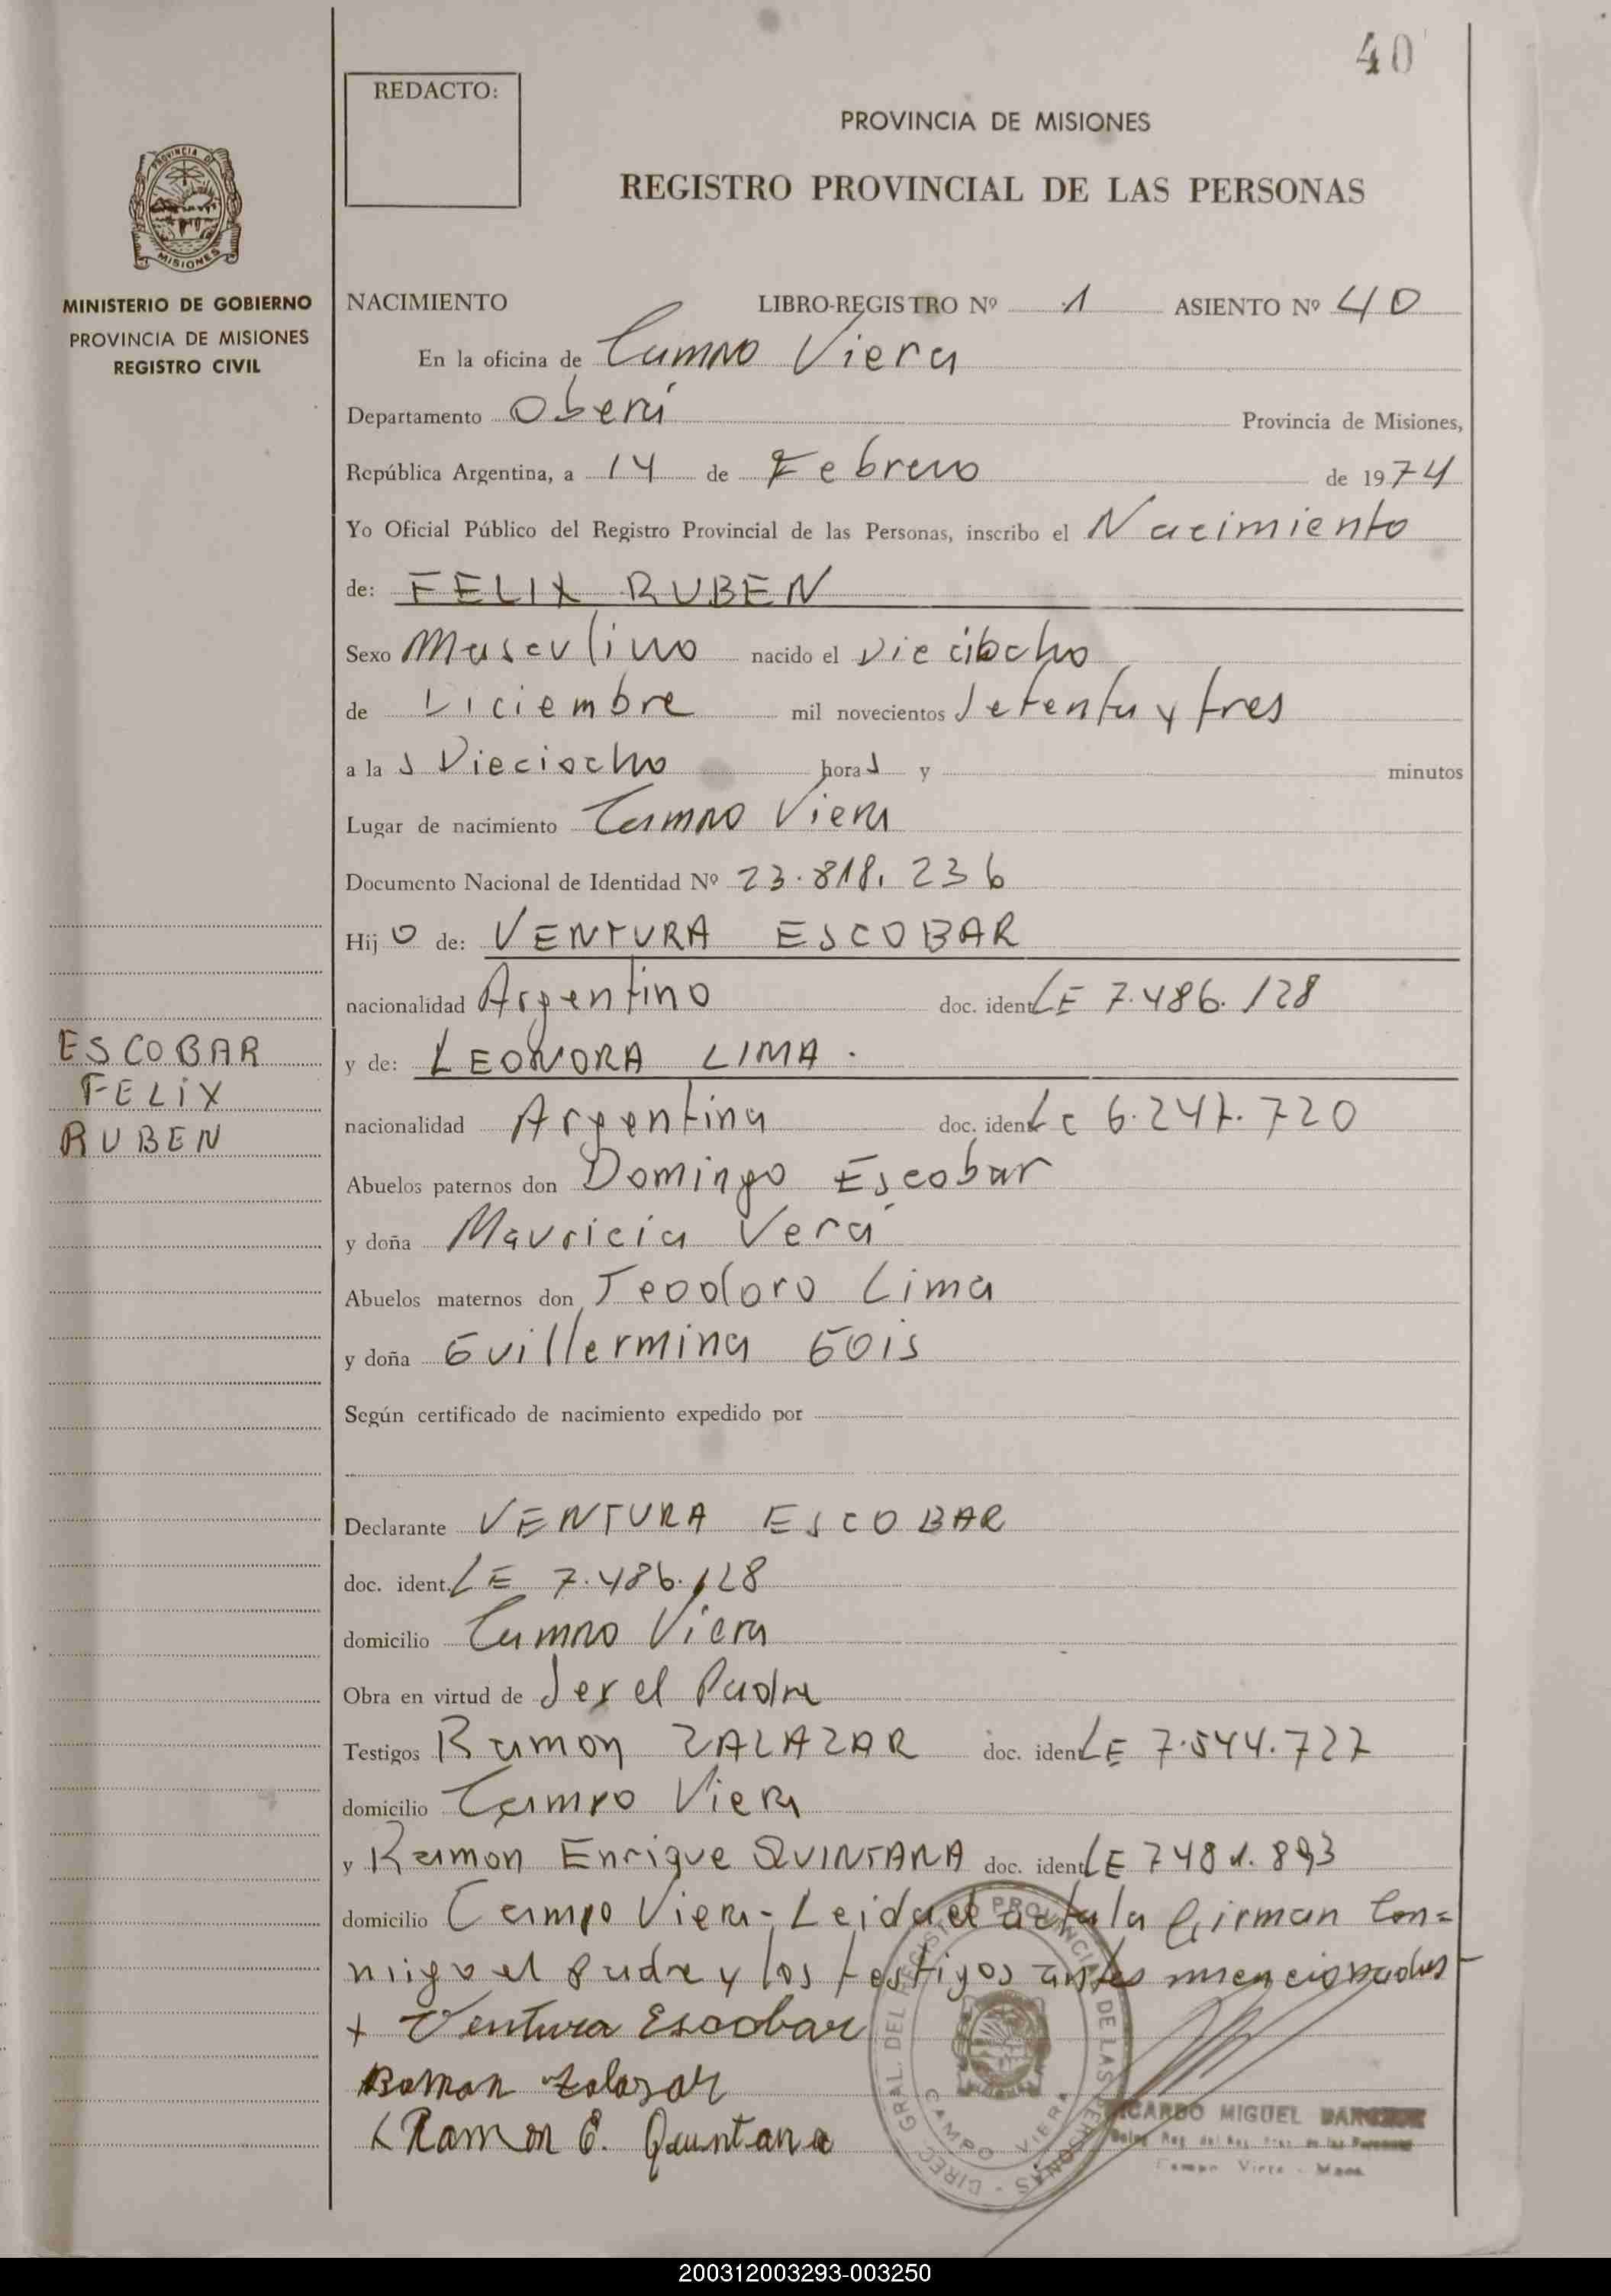 40
REDACTO:
PROVINCIA DE MISIONES
REGISTRO PROVINCIAL DE LAS PERSONAS
PROVINCIA DE
MISIONES
MINISTERIO DE GOBIERNO
PROVINCIA DE MISIONES
REGISTRO CIVIL
NACIMIENTO LIBRO-REGISTRO Nº 1 ASIENTO Nº 40
En la oficina de Campo Viera
Departamento Oberá Provincia de Misiones,
República Argentina, a 14 de Febrero de 1974
Yo Oficial Público del Registro Provincial de las Personas, inscribo el Nacimiento
de: FELIX RUBEN
Sexo Masculino nacido el Dieciocho
de Diciembre mil novecientos Setenta y tres
a la s Dieciocho hora s y minutos
Lugar de nacimiento Campo Viera
Documento Nacional de Identidad Nº 23.818.236
Hij o de: VENTURA ESCOBAR
nacionalidad Argentino doc. ident LE 7.486.128
ESCOBAR
FELIX
RUBEN
y de: LEONORA LIMA.
nacionalidad Argentina doc. ident Lc 6.247.720
Abuelos paternos don Domingo Escobar
y doña Mauricia Verá
Abuelos maternos don Teodoro Lima
y doña Guillermina Gois
Según certificado de nacimiento expedido por
Declarante VENTURA ESCOBAR
doc. ident. LE 7.486.128
domicilio Campo Viera
Obra en virtud de Ser el Padre
Testigos Ramon ZALAZAR doc. ident LE 7.544.727
domicilio Campo Viera
y Ramón Enrique QUINTANA doc. ident LE 7481.893
domicilio Campo Viera - Leida el acta la firman Con=
migo el padre y los testigos antes mencionados
+ Ventura Escobar
Ramon Zalazar
Ramon E. Quintana
DIREC. GRAL. DEL REGISTRO PROVINCIAL DE LAS PERSONAS
CAMPO VIERA
RICARDO MIGUEL
Campo Viera - Mnes.
200312003293-003250